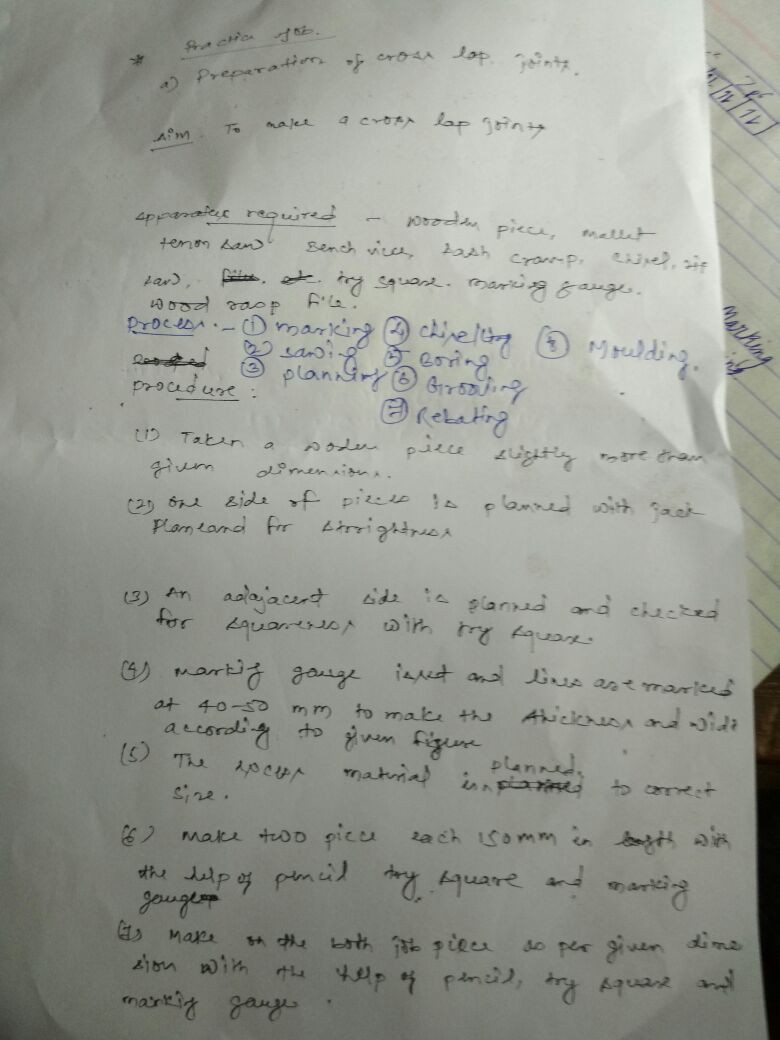 * Practice Job.
a) Preparation of cross lap joints.
Aim. To make a cross lap joints
Apparatus required - wooden piece, mallet
tenon saw Bench vice, sash cramp, chisel, rip
saw, try square. marking gauge.
wood rasp file.
Process:- (1) marking (4) chiselling (8) Moulding.
(2) sawing (5) Boring
(3) planning (6) Grooving
procedure: (7) Rebating
(1) Taken a wooden piece slightly more than
given dimensions.
(2) one side of pieces is planned with jack
plane and for
(3) An adajacent side is planned and checked
for squareness with try square.
(4) markig gauge is set and lines are marked
at 40-50 mm to make the thickness and wide
according to given figure
(5) The material is planned. to correct
size.
(6) make two piece each 150mm in length with
the help of pencil try square and marking
gauge
(7) Make on the both job piece as per given dime
sion with the help of pencil, try square and
markig gauge.
marking